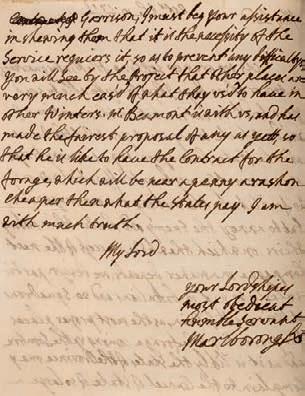 Garrison, I must beg your assistance
in shewing them that it is the necessity of the
Service requiers it, so as to prevent any difficulty
you will see by the project that other places are
very much eased of what they us'd to have in
other Winters. Mr Beamont is with us, and has
made the fairest proposal of any as yett, so
that he is like to have the Contract for the
forage, which will be near a penny a rashon
cheaper then what the States pay I am
with much truth
My Lord
your Lordshipes
most obedient
humble servant
Marlborough